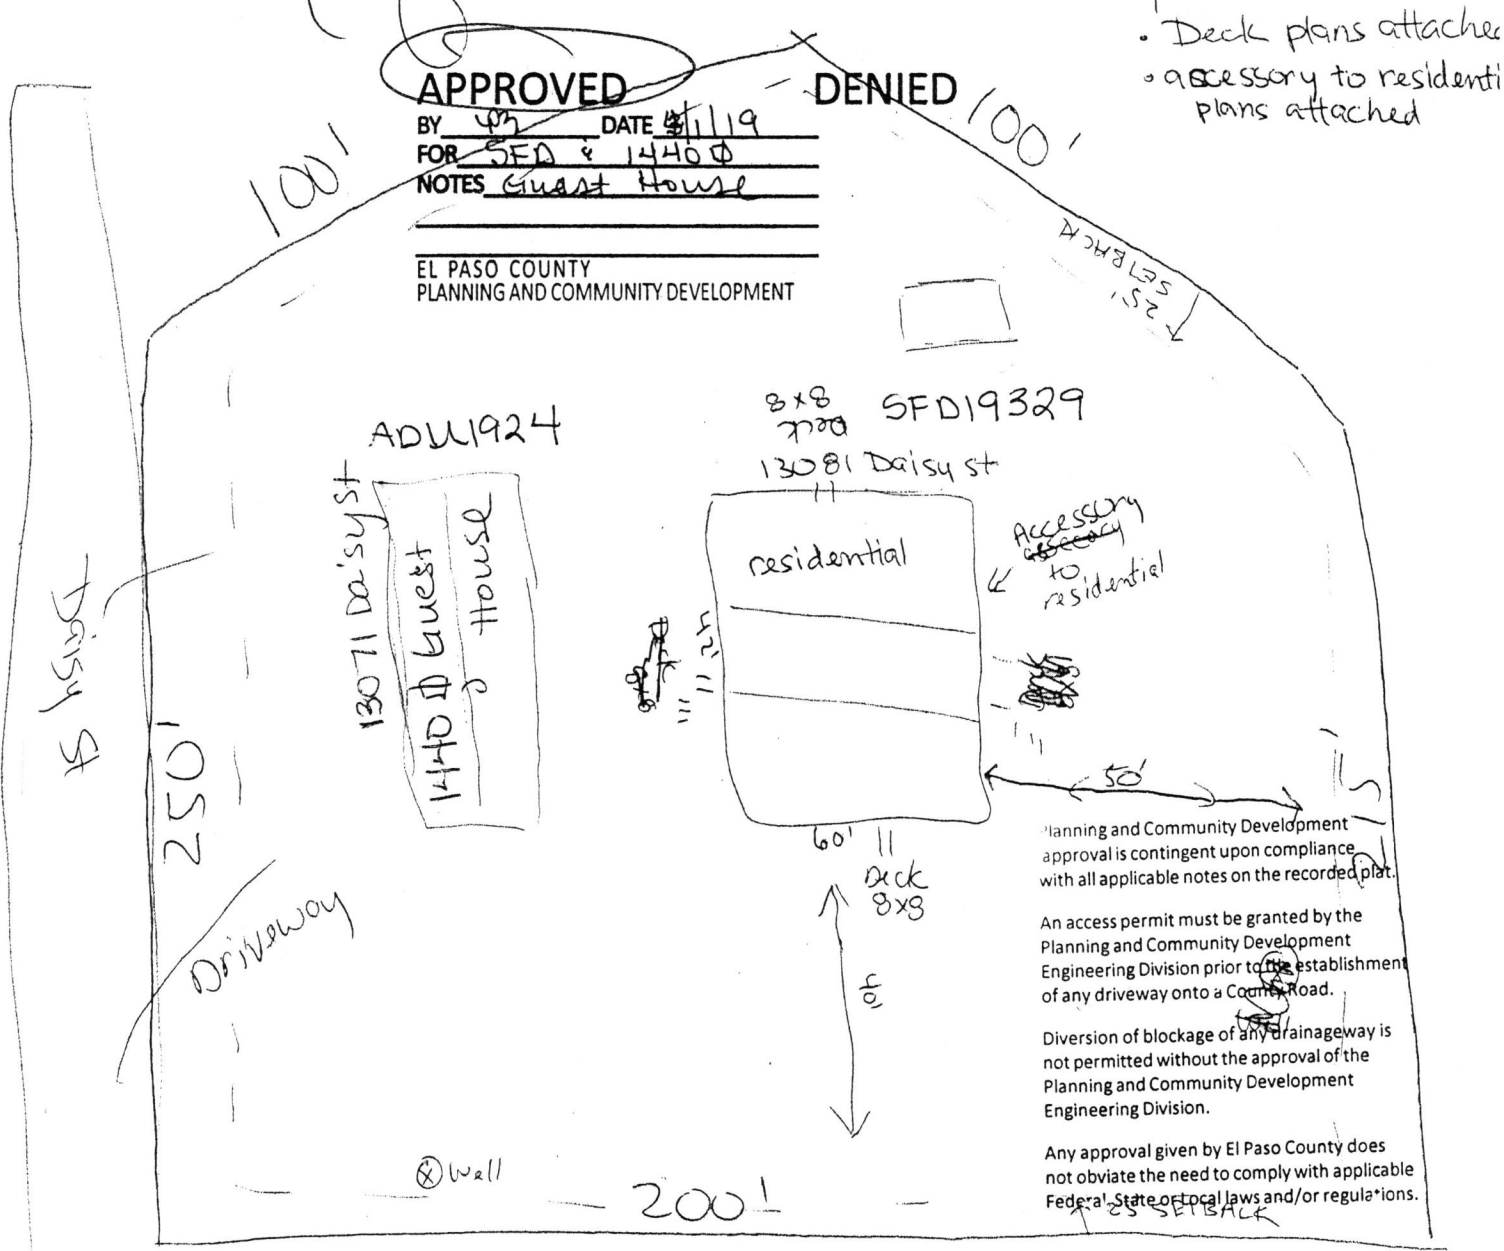 · Deck plans attached
· accessory to residenti
plans attached
APPROVED
DENIED
BY
DATE 4/1/19
FOR SFD & 1440 ⏀
NOTES Guest House
EL PASO COUNTY
PLANNING AND COMMUNITY DEVELOPMENT
100'
100'
SETBACK
25'
ADU1924
8x8
Deck
SFD19329
13081 Daisy st
13071 Daisy st
1440 ⏀ Guest
House
residential
Accessory
to
residential
42'
Daisy St
250'
50'
60'
Deck
8x8
Driveway
40'
Planning and Community Development
approval is contingent upon compliance
with all applicable notes on the recorded plat.
An access permit must be granted by the
Planning and Community Development
Engineering Division prior to the establishment
of any driveway onto a County Road.
Diversion of blockage of any drainageway is
not permitted without the approval of the
Planning and Community Development
Engineering Division.
Any approval given by El Paso County does
not obviate the need to comply with applicable
Federal, State or Local laws and/or regulations.
⊗ Well
200'
25' SETBACK